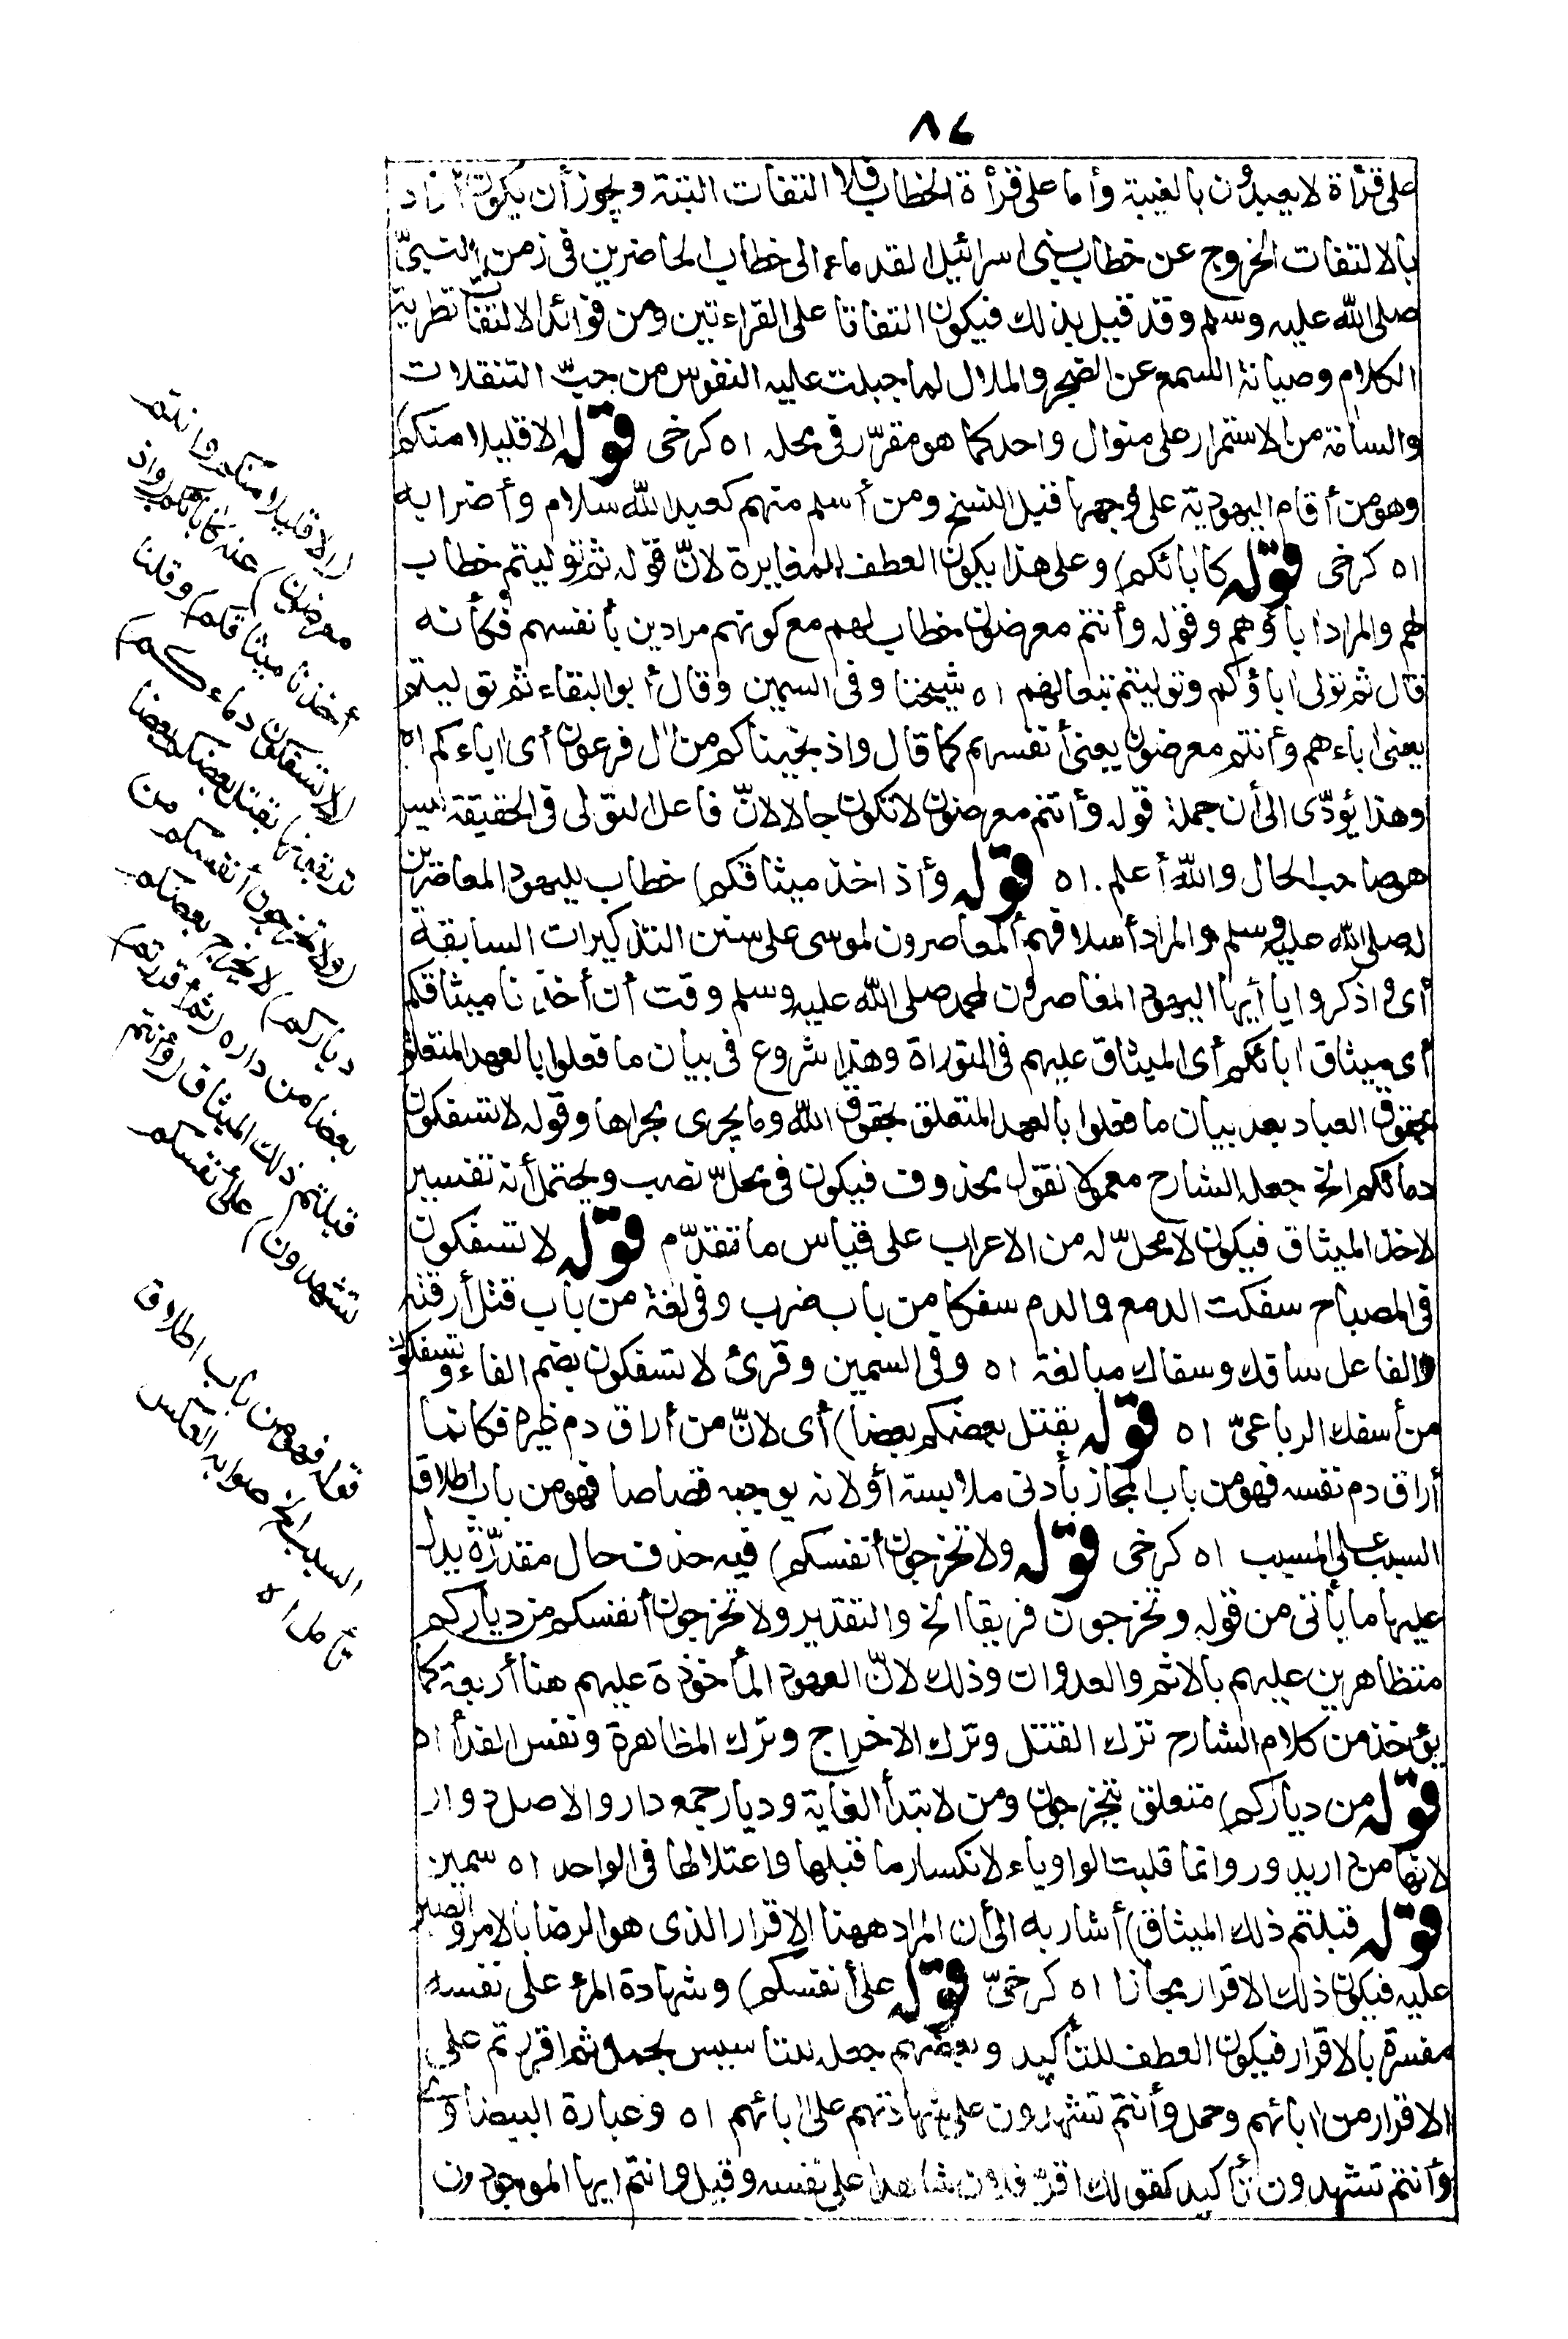 ٨٤
على قرأة لا يعبدون بالغيبة وأما على قرأة الخطاب فلا التفات البتة ويجوز أن يكون أراد
بالالتفات الخروج عن خطاب بنى اسرائيل القدماء الى خطاب الحاضرين فى زمن النبىّ
صلى الله عليه وسلم وقد قيل بذلك فيكون التفاتا على القراءتين ومن فوائد الالتفات تطرية
الكلام وصيانة السمع عن الضجر والملال لما جبلت عليه النفوس من حبّ التنقلات
والسآمة من الاستمرار على منوال واحد كما هو مقرّر فى محله اه كرخى قوله الا قليلا منكم
وهو من أقام اليهودية على وجهها قبل النسخ ومن أسلم منهم كعبد الله سلام وأضرابه
اه كرخى قوله كابائكم) وعلى هذا يكون العطف للمغايرة لانّ قوله ثم توليتم خطاب
لهم والمراد اباؤهم وقوله وأنتم معرضون خطاب لهم مع كونهم مرادين بأنفسهم فكأنه
قال ثم تولى اباؤكم وتوليتم تبعا لهم اه شيخنا وفى السمين وقال أبو البقاء ثم توليتم
يعنى اباءهم وأنتم معرضون يعنى أنفسهم كما قال واذ نجيناكم من ال فرعون أى اباءكم اه
وهذا يؤدّى الى أن جملة قوله وأنتم معرضون لا تكون حالا لانّ فاعل التولى فى الحقيقة ليس
هو صاحب الحال والله أعلم. اه قوله وأذ اخذ ميثاقكم) خطاب لليهود المعاصرين
له صلى الله عليه وسلم والمراد أسلافهم المعاصرون لموسى على سنن التذكيرات السابقة
أى واذكروا يا أيها اليهود المعاصرون لمحمد صلى الله عليه وسلم وقت أن أخذنا ميثاقكم
أى ميثاق ابائكم أى الميثاق عليهم فى التوراة وهذا شروع فى بيان ما فعلوا بالعهد المتعلق
بحقوق العباد بعد بيان ما فعلوا بالعهد المتعلق بحقوق الله وما يجرى مجراها وقوله لا تسفكون
دمائكم الخ جعله الشارح معمولا لقول محذوف فيكون فى محلّ نصب ويحتمل أنه تفسير
لاخذ الميثاق فيكون لا محلّ له من الاعراب على قياس ما تقدّم قوله لا تسفكون
فى المصباح سفكت الدمع والدم سفكا من باب ضرب وفى لغة من باب قتل أرقته
والفاعل سافك وسفاك مبالغة اه وفى السمين وقرئ لا تسفكون بضم الفاء وتسفكون
من أسفك الرباعىّ اه قوله بقتل بعضكم بعضا) أى لانّ من أراق دم غيره فكانما
أراق دم نفسه فهو من باب المجاز بأدنى ملابسة أو لانه يوجبه قصاصا فهو من باب اطلاق
السبب على المسبب اه كرخى قوله ولا تخرجون أنفسكم) فيه حذف حال مقدّرة يدل
عليها ما يأتى من قوله وتخرجون فريقا الخ والتقدير ولا تخرجون أنفسكم من دياركم
متظاهرين عليهم بالاثم والعدوان وذلك لانّ العهود المأخوذة عليهم هنا أربعة كما
يؤخذ من كلام الشارح ترك القتل وترك الاخراج وترك المظاهرة ونفس الفدأ اه
قوله من دياركم) متعلق بتخرجون ومن لابتدأ الغاية وديار جمع دار والاصل دوار
لانها من دار يدور وانما قلبت الواو ياء لانكسار ما قبلها واعتلالها فى الواحد اه سمين
قوله قبلتم ذلك الميثاق) أشار به الى أن المراد ههنا الاقرار الذى هو الرضا بالامر والصبر
عليه فيكون ذلك الاقرار مجازا اه كرخىّ قوله على أنفسكم) وشهادة المرء على نفسه
مفسرة بالاقرار فيكون العطف للتأكيد وبعضهم جعله للتأسيس بحمل ثم اقررتم على
الاقرار من ابائهم وحمل وأنتم تشهدون على شهادتهم على ابائهم اه وعبارة البيضاوى
وأنتم تشهدون تأكيد كقولك اقرّ فلان شاهدا على نفسه وقيل وانتم ايها الموجودون
(الا قليلا منكم وانتم
معرضون) عنه كابائكم (واذ
أخذنا ميثاقكم) وقلنا
(لا تسفكون دماءكم)
تريقونها بقتل بعضكم بعضا
(ولا تخرجون أنفسكم من
دياركم) لا يخرج بعضكم
بعضا من داره (ثم أقررتم)
قبلتم ذلك الميثاق (وأنتم
تشهدون) على أنفسكم
قوله فهو من باب اطلاق
السبب الخ صوابه العكس
تأمل اه